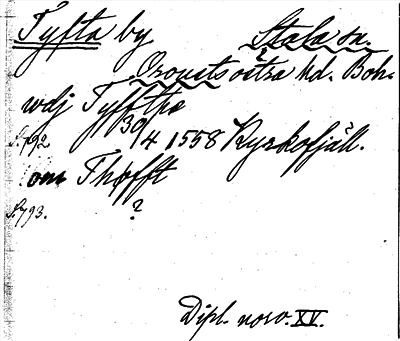 Tyfta by Stala sn.
Orousts östra hd. Boh.
wdj Tyffthe
s. 792 30/4 1558 Kyrkofjäll.
om Thøfft
s. 793. ?
Dipl. norv. XV.